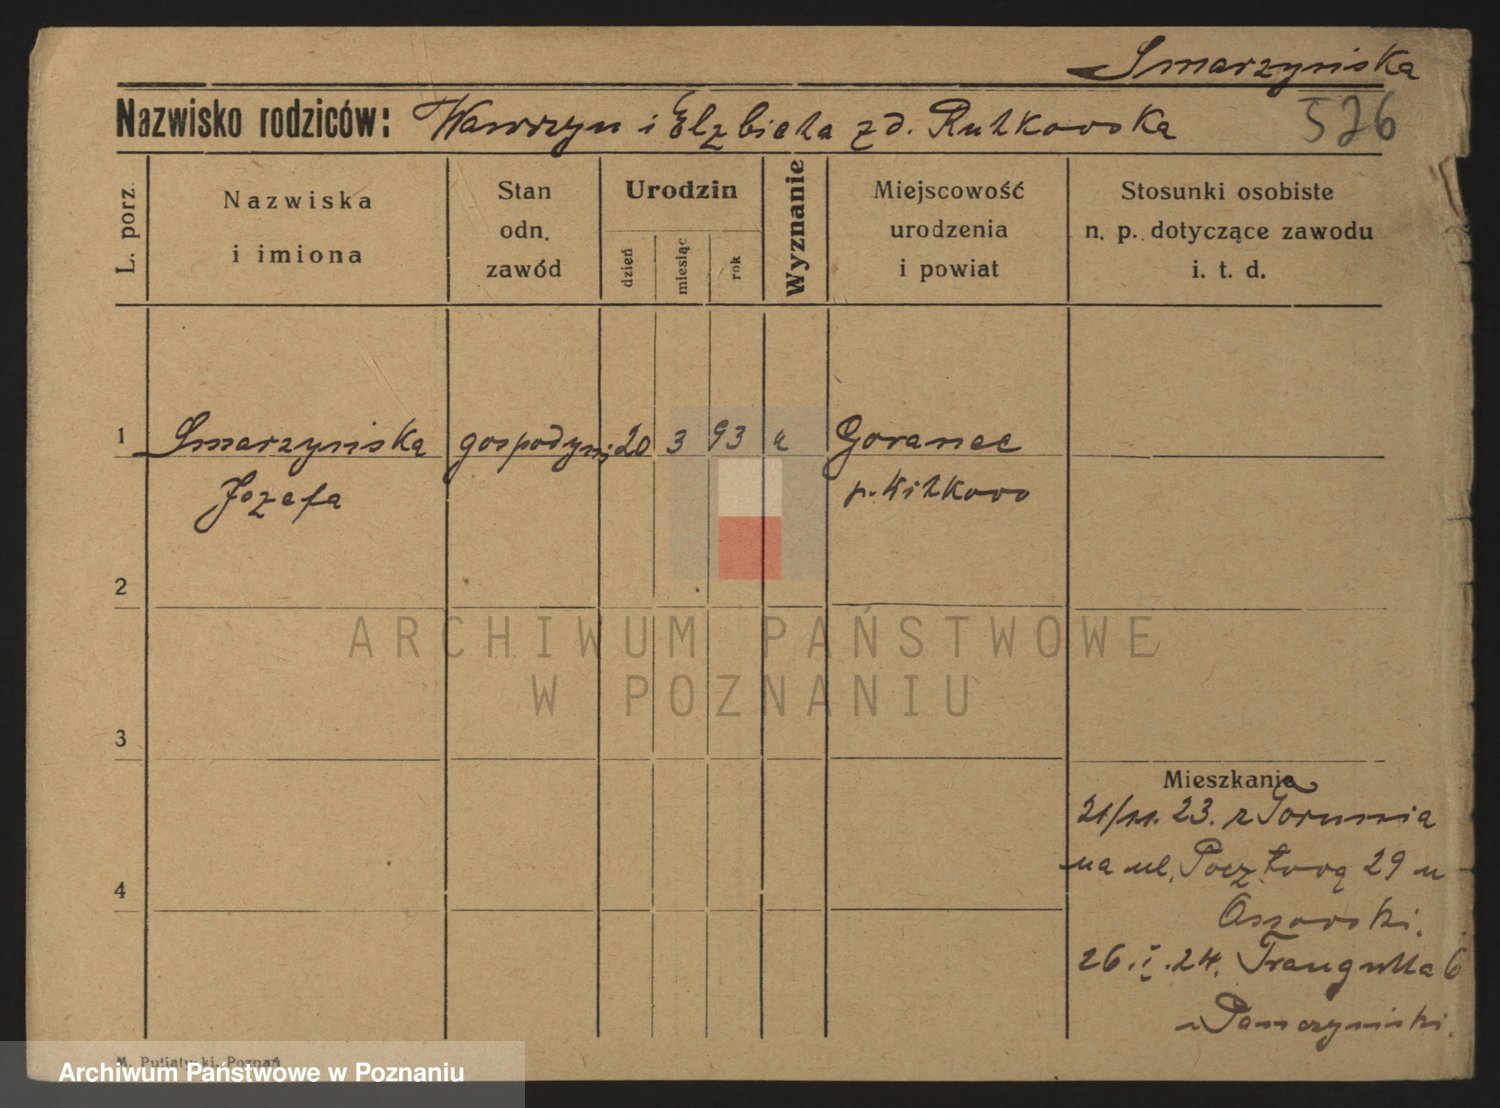 Smarzyńska
Nazwisko rodziców: Wawrzyn i Elzbieta z d. Rutkowska 526
L. porz.
Nazwiska
i imiona
Stan
odn.
zawód
Urodzin
dzień
miesiąc
rok
Wyznanie
Miejscowość
urodzenia
i powiat
Stosunki osobiste
n. p. dotyczące zawodu
i. t. d.
1 Smarzyńska gospodyni 20 3 93 Goranec
Jozefa p. Witkowo
2
ARCHIWUM PAŃSTWOWE
W POZNANIU
3
Mieszkania
21/11. 23. z Torunia
na ul. Pocztową 29 u
26.I.24. Traugutta 6
4
M. Putiatycki, Poznań
Archiwum Państwowe w Poznaniu